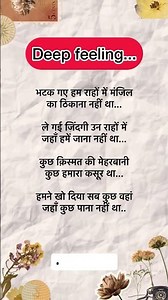 Deep feeling...
भटक गए हम राहों में मंजिल
का ठिकाना नहीं था...
ले गई जिंदगी उन राहों में
जहाँ हमें जाना नहीं था...
कुछ क़िस्मत की मेहरबानी
कुछ हमारा कसूर था...
हमने खो दिया सब कुछ वहां
जहाँ कुछ पाना नहीं था..